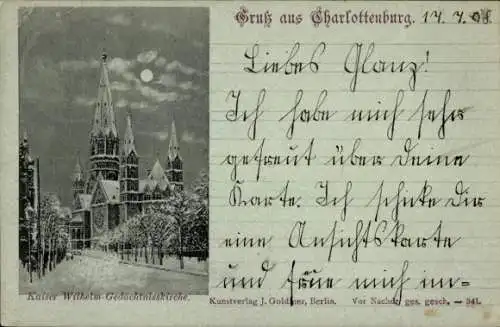 Gruß aus Charlottenburg. 17. 7. 08
Liebes Glanz!
Ich habe mich sehr
gefreut über deine
Karte. Ich schicke dir
eine Ansichtskarte
und freue mich im=
Kaiser Wilhelm Gedächtniskirche.
Kunstverlag J. Goldiner, Berlin. Vor Nachdr. ges. gesch. — 341.